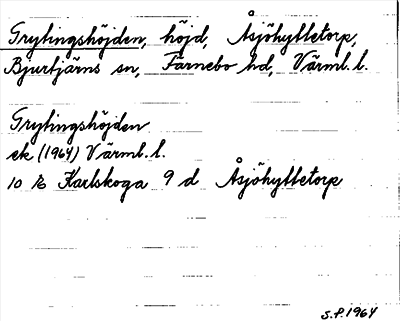 Grytingshöjden, höjd, Åsjöhyttetorp,
Bjurtjärns sn, Färnebo hd, Värml. l.
Grytingshöjden
ek (1964) Värml. l.
10 E Karlskoga 9 d Åsjöhyttetorp
S.P. 1964